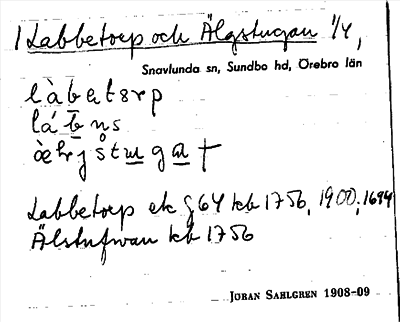 1 Labbetorp och Älgstugan 1/4,
Snavlunda sn, Sundbo hd, Örebro län
làbetorp
lábns
Labbetorp ek § 64 kb 1756, 1900, 1694
Älstufwan kb 1756
JÖRAN SAHLGREN 1908-09